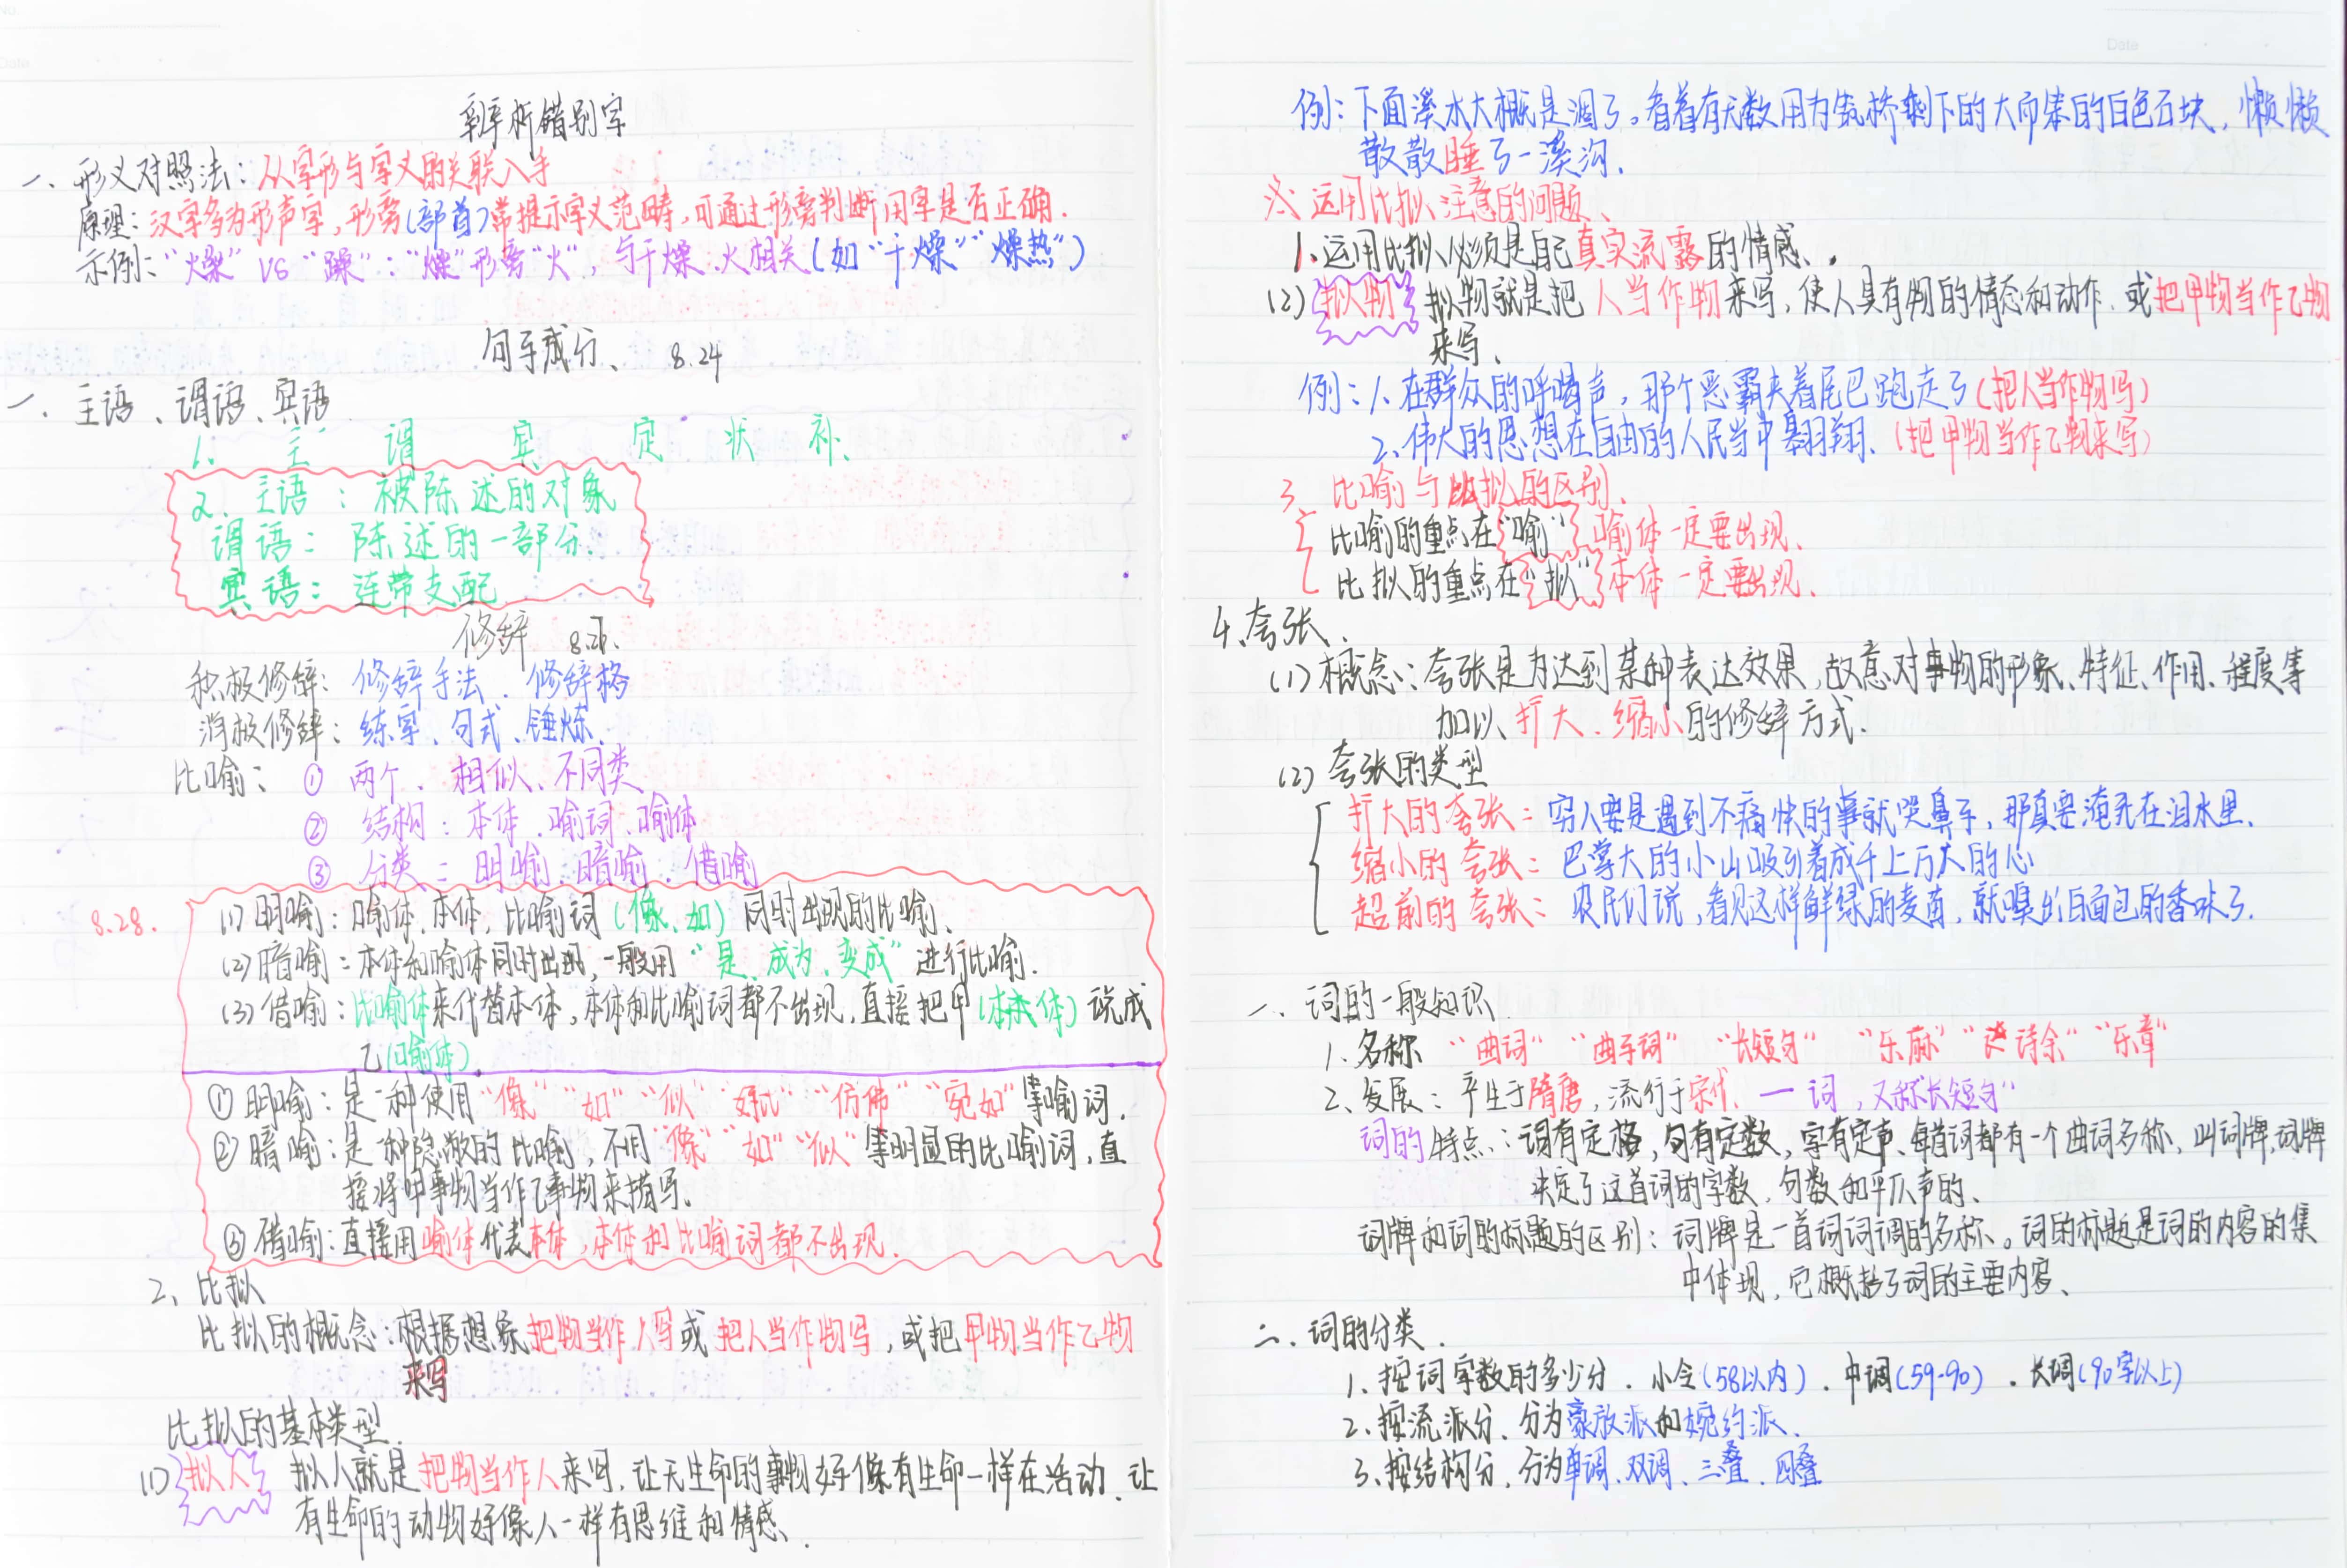 辨析错别字
一、形义对照法：从字形与字义的关联入手
原理：汉字多为形声字，形旁(部首)常提示字义范畴，可通过形旁判断用字是否正确.
示例：“燥” VS “躁”：“燥”形旁“火”，与干燥、火相关(如“干燥”“燥热”)
句子成分、 8.24
一、主语、谓语、宾语
1、 主 谓 宾 定 状 补、
2、主语：被陈述的对象
谓语：陈述的一部分.
宾语：连带支配
修辞
积极修辞：修辞手法、修辞格
消极修辞：练字、句式、锤炼.
比喻：① 两个、相似、不同类
② 结构：本体、喻词、喻体
③ 分类：明喻、暗喻、借喻
8.28.
(1)明喻：喻体、本体，比喻词(像、如)同时出现的比喻、
(2)暗喻：本体和喻体同时出现，一般用“是、成为、变成”进行比喻.
(3)借喻：比喻体来代替本体，本体和比喻词都不出现，直接把甲(本体)说成
乙(喻体).
① 明喻：是一种使用“像”“如”“似”“好比”“仿佛”“宛如”等喻词.
② 暗喻：是一种隐敝的比喻，不用“像”“如”“似”等明显的比喻词，直
接将甲事物当作乙事物来描写.
③ 借喻：直接用喻体代表本体，本体和比喻词都不出现.
2、比拟
比拟的概念：根据想象把物当作人写或把人当作物写，或把甲物当作乙物
来写
比拟的基本类型
(1) 拟人 拟人就是把物当作人来写，让无生命的事物好像有生命一样在活动、让
有生命的动物好像人一样有思维和情感、
例：下面溪水大概是涸了。看着有无数用为筑桥剩下的大而笨的白色石块，懒懒
散散睡了一溪沟.
运用比拟注意的问题、
1、运用比拟必须是自己真实流露的情感、.
(2) 拟物 拟物就是把人当作物来写，使人具有物的情态和动作、或把甲物当作乙物
来写、
例：1、在群众的呼喊声，那个恶霸夹着尾巴跑走了(把人当作物写)
2、伟大的思想在自由的人民当中翱翔.(把甲物当作乙物来写)
3 比喻与比拟的区别、
比喻的重点在“喻” 喻体一定要出现、
比拟的重点在“拟” 本体一定要出现、
4、夸张、
(1)概念：夸张是为达到某种表达效果，故意对事物的形象、特征、作用、程度等
加以扩大、缩小的修辞方式.
(2) 夸张的类型
扩大的夸张：穷人要是遇到不痛快的事就哭鼻子，那真要淹死在泪水里、
缩小的夸张：巴掌大的小山吸引着成千上万人的心
超前的夸张：农民们说，看见这样鲜绿的麦苗，就嗅出白面包的香味了.
一、词的一般知识
1、名称 “曲词”“曲子词” “长短句” “乐府”“诗余”“乐章”
2、发展：产生于隋唐，流行于宋代、一词，又称长短句”
词的特点：调有定格，句有定数，字有定声、每首词都有一个曲词名称，叫词牌，词牌
决定了这首词的字数，句数和平仄声的、
词牌和词的标题的区别：词牌是一首词词调的名称。词的标题是词的内容的集
中体现，它概括了词的主要内容、
二、词的分类.
1、按词字数的多少分、小令(58以内)、中调(59-90)、长调(90字以上)
2、按流派分、分为豪放派和婉约派、
3、按结构分，分为单调、双调、三叠、四叠